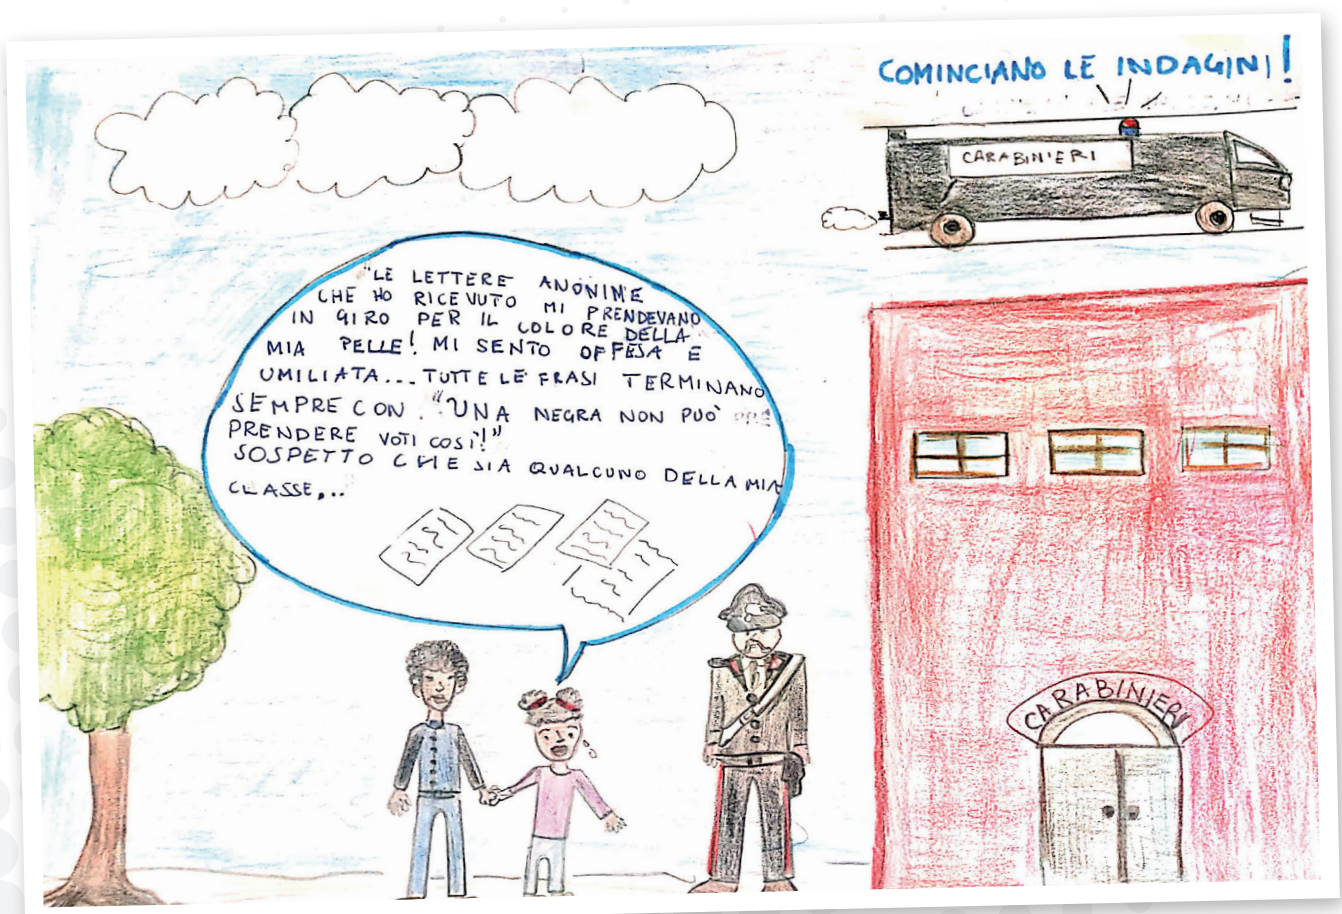 COMINCIANO LE INDAGINI!
CARABINIERI
"LE LETTERE ANONIME
CHE HO RICEVUTO MI PRENDEVANO
IN GIRO PER IL COLORE DELLA
MIA PELLE! MI SENTO OFFESA E
UMILIATA... TUTTE LE FRASI TERMINANO
SEMPRE CON "UNA NEGRA NON PUÒ
PRENDERE VOTI COSÌ!"
SOSPETTO CHE SIA QUALCUNO DELLA MIA
CLASSE...
CARABINIERI